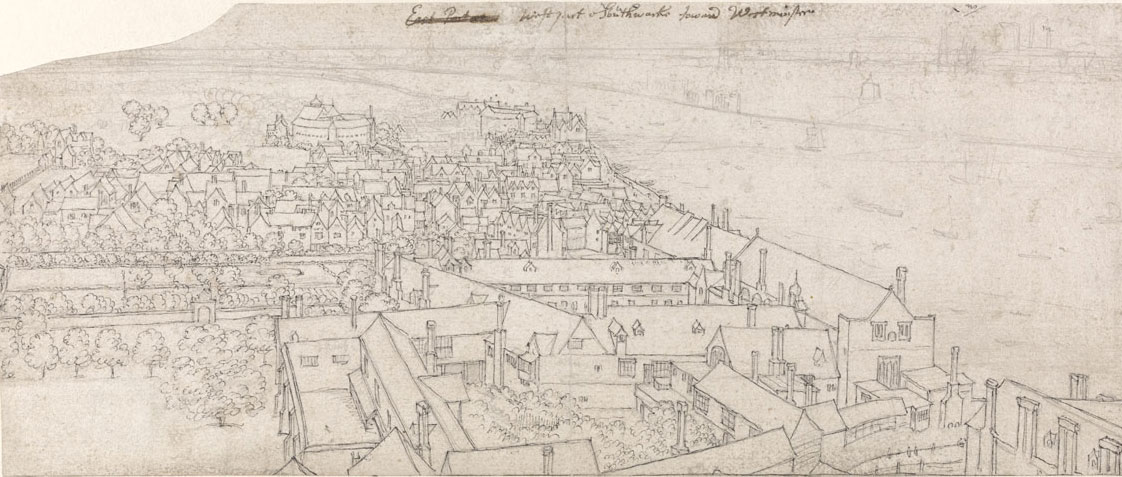 West part o Southwarke toward Westminster